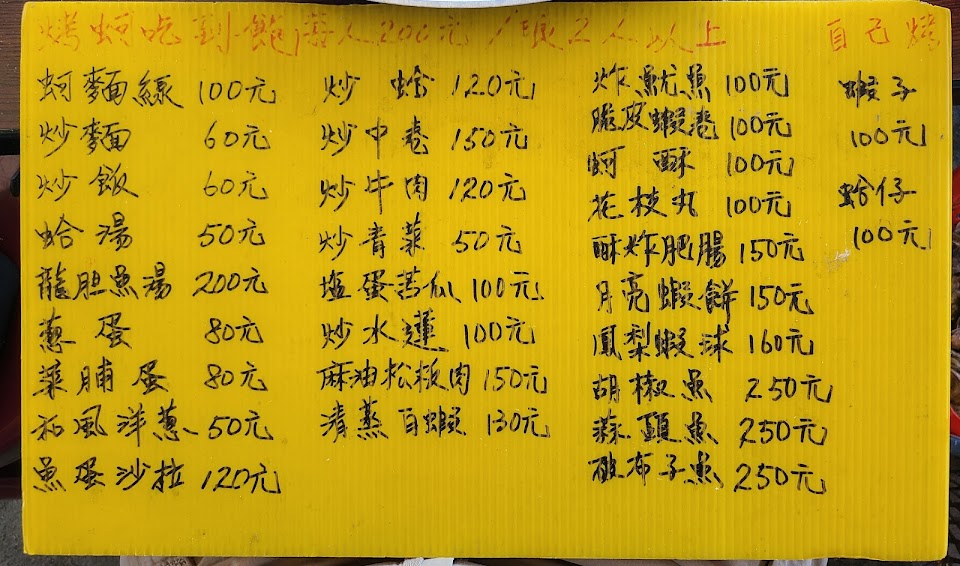 烤蚵吃到飽每人200元/限2人以上
自己烤
蚵麵線 100元
炒麵 60元
炒飯 60元
蛤湯 50元
龍胆魚湯 200元
蔥蛋 80元
菜脯蛋 80元
和風洋蔥 50元
魚蛋沙拉 120元
炒蛤 120元
炒中卷 150元
炒牛肉 120元
炒青菜 50元
塩蛋苦瓜 100元
炒水蓮 100元
麻油松板肉 150元
清蒸白蝦 130元
炸魷魚 100元
脆皮蝦卷 100元
蚵酥 100元
花枝丸 100元
酥炸肥腸 150元
月亮蝦餅 150元
鳳梨蝦球 160元
胡椒魚 250元
蒜頭魚 250元
破布子魚 250元
蝦子
100元
蛤仔
100元